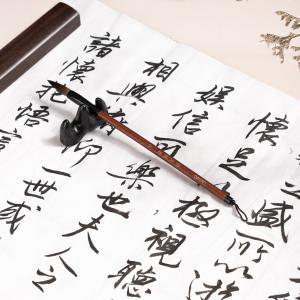 盛所以遊
懷足以極視聽
娛信可樂也夫人之
相與俯仰一世或
諸懷抱悟言